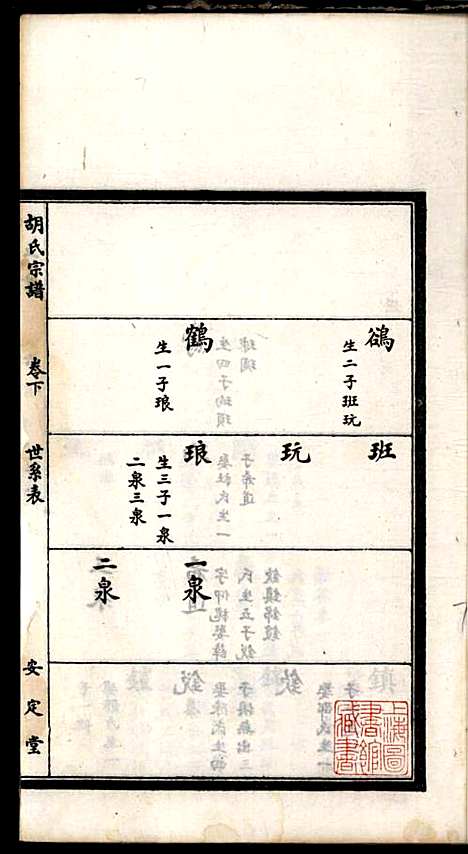 鵮
生二子班玩
鶴
生一子琅
班
玩
琅
生三子一泉
二泉三泉
一泉
二泉
胡氏宗譜
卷下
世系表
安定堂
上海圖
書館
藏書